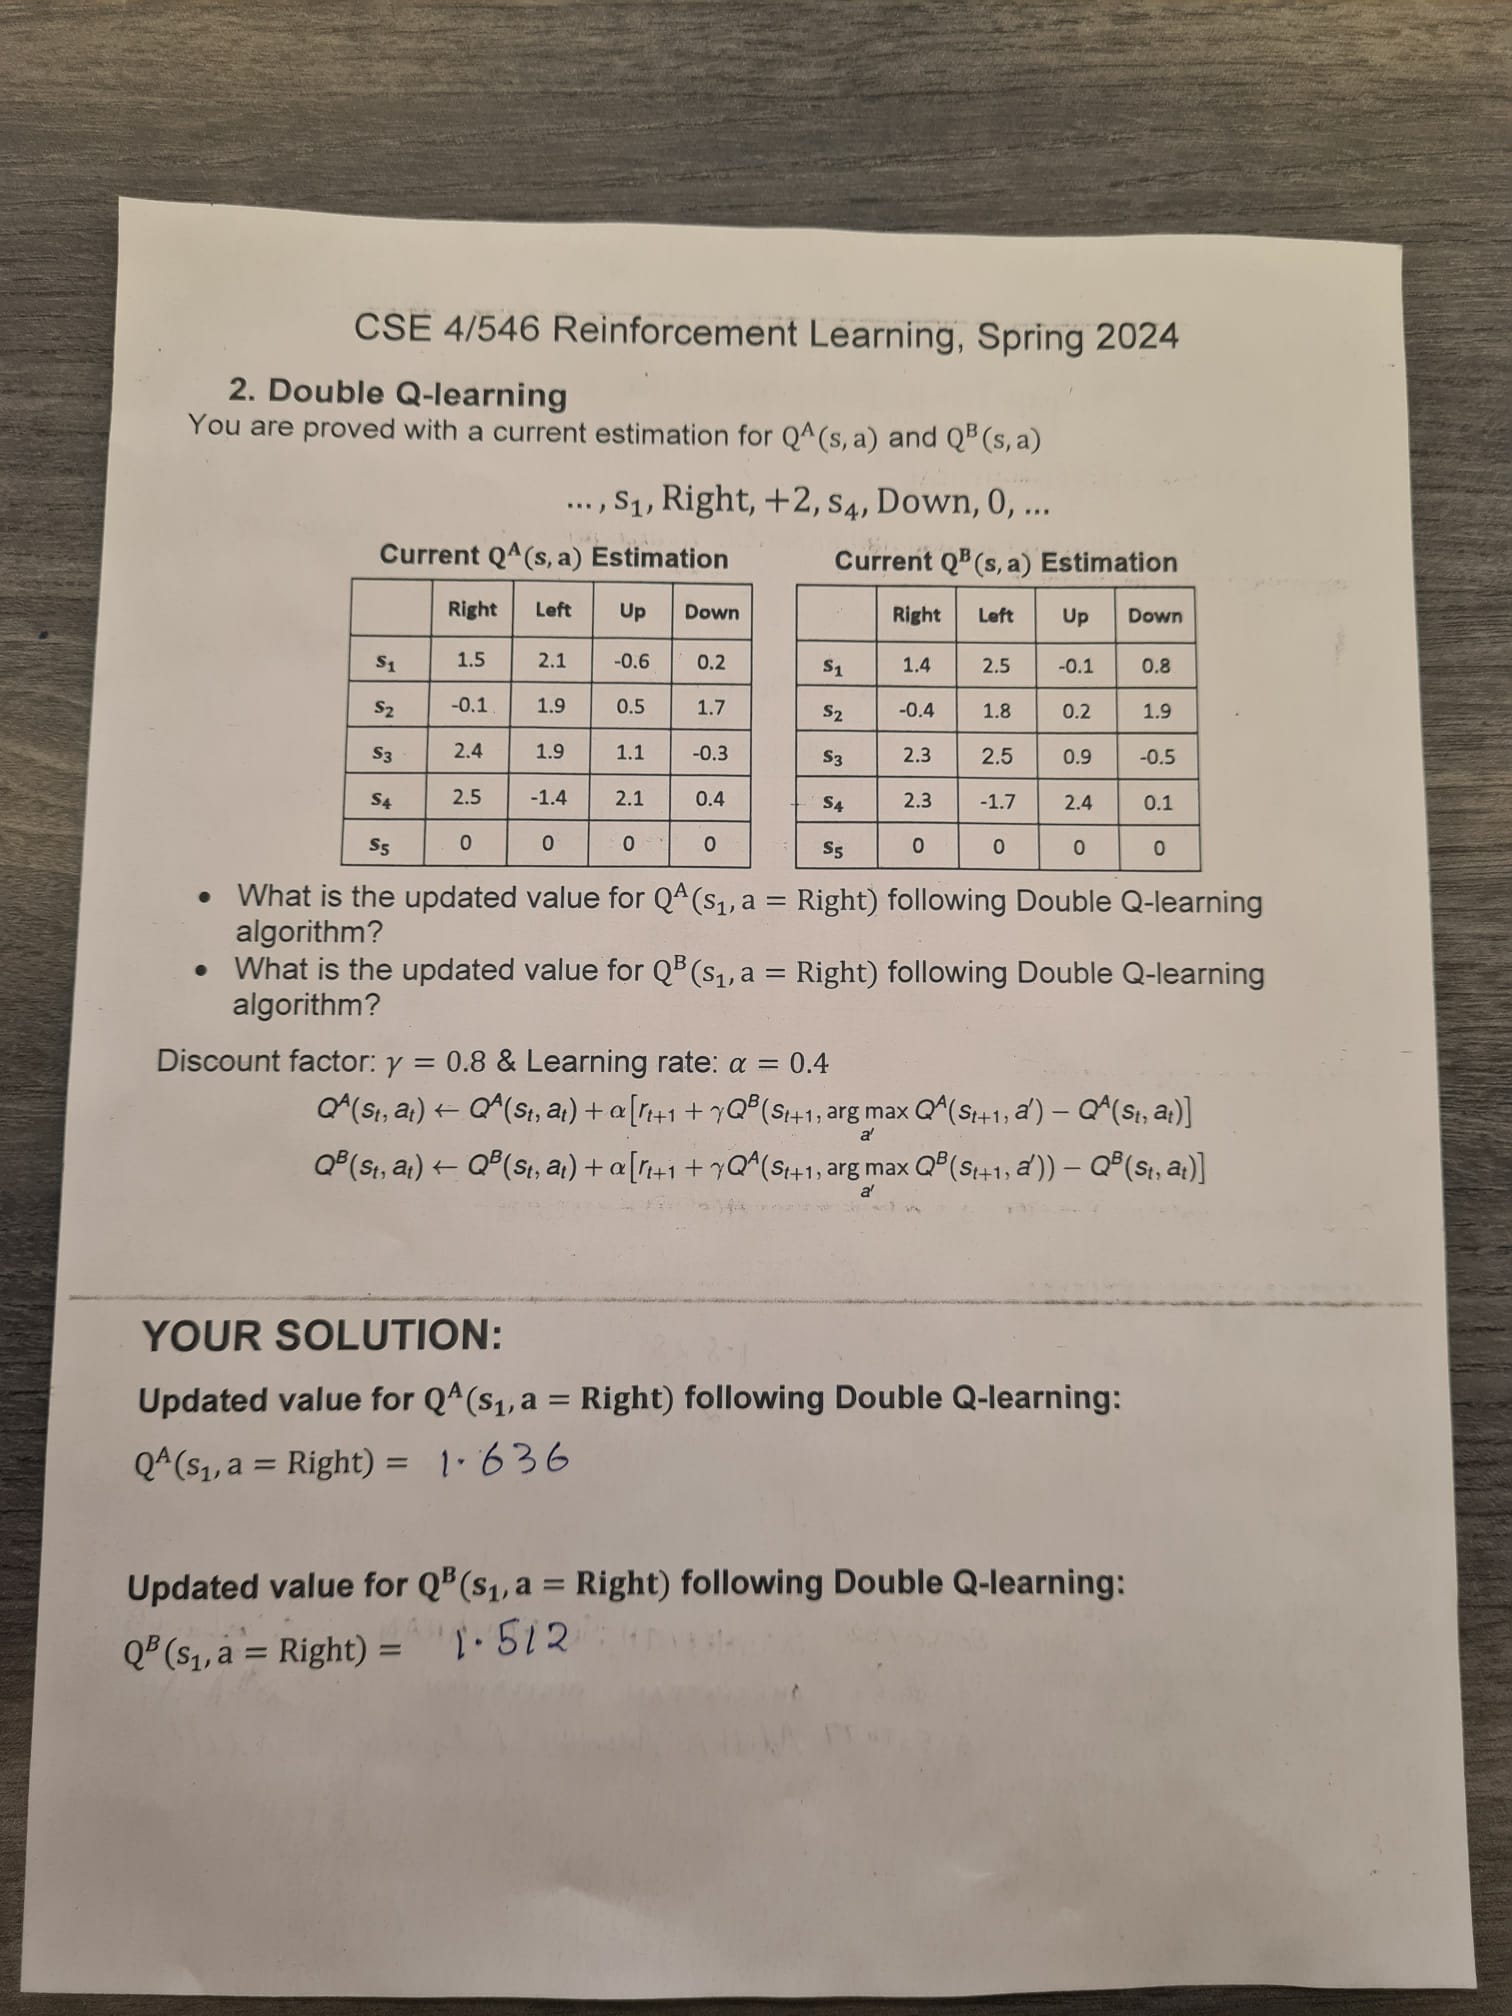 CSE 4/546 Reinforcement Learning, Spring 2024
2. Double Q-learning
You are proved with a current estimation for Qᴬ(s, a) and Qᴮ(s, a)
..., s₁, Right, +2, s₄, Down, 0, ...
Current Qᴬ(s, a) Estimation
Right Left Up Down
s₁ 1.5 2.1 -0.6 0.2
s₂ -0.1 1.9 0.5 1.7
s₃ 2.4 1.9 1.1 -0.3
s₄ 2.5 -1.4 2.1 0.4
s₅ 0 0 0 0
Current Qᴮ(s, a) Estimation
Right Left Up Down
s₁ 1.4 2.5 -0.1 0.8
s₂ -0.4 1.8 0.2 1.9
s₃ 2.3 2.5 0.9 -0.5
s₄ 2.3 -1.7 2.4 0.1
s₅ 0 0 0 0
• What is the updated value for Qᴬ(s₁, a = Right) following Double Q-learning
algorithm?
• What is the updated value for Qᴮ(s₁, a = Right) following Double Q-learning
algorithm?
Discount factor: γ = 0.8 & Learning rate: α = 0.4
Qᴬ(sₜ, aₜ) ← Qᴬ(sₜ, aₜ) + α[rₜ₊₁ + γQᴮ(sₜ₊₁, arg max Qᴬ(sₜ₊₁, a′) − Qᴬ(sₜ, aₜ)]
a′
Qᴮ(sₜ, aₜ) ← Qᴮ(sₜ, aₜ) + α[rₜ₊₁ + γQᴬ(sₜ₊₁, arg max Qᴮ(sₜ₊₁, a′)) − Qᴮ(sₜ, aₜ)]
a′
YOUR SOLUTION:
Updated value for Qᴬ(s₁, a = Right) following Double Q-learning:
Qᴬ(s₁, a = Right) = 1.636
Updated value for Qᴮ(s₁, a = Right) following Double Q-learning:
Qᴮ(s₁, a = Right) = 1.512